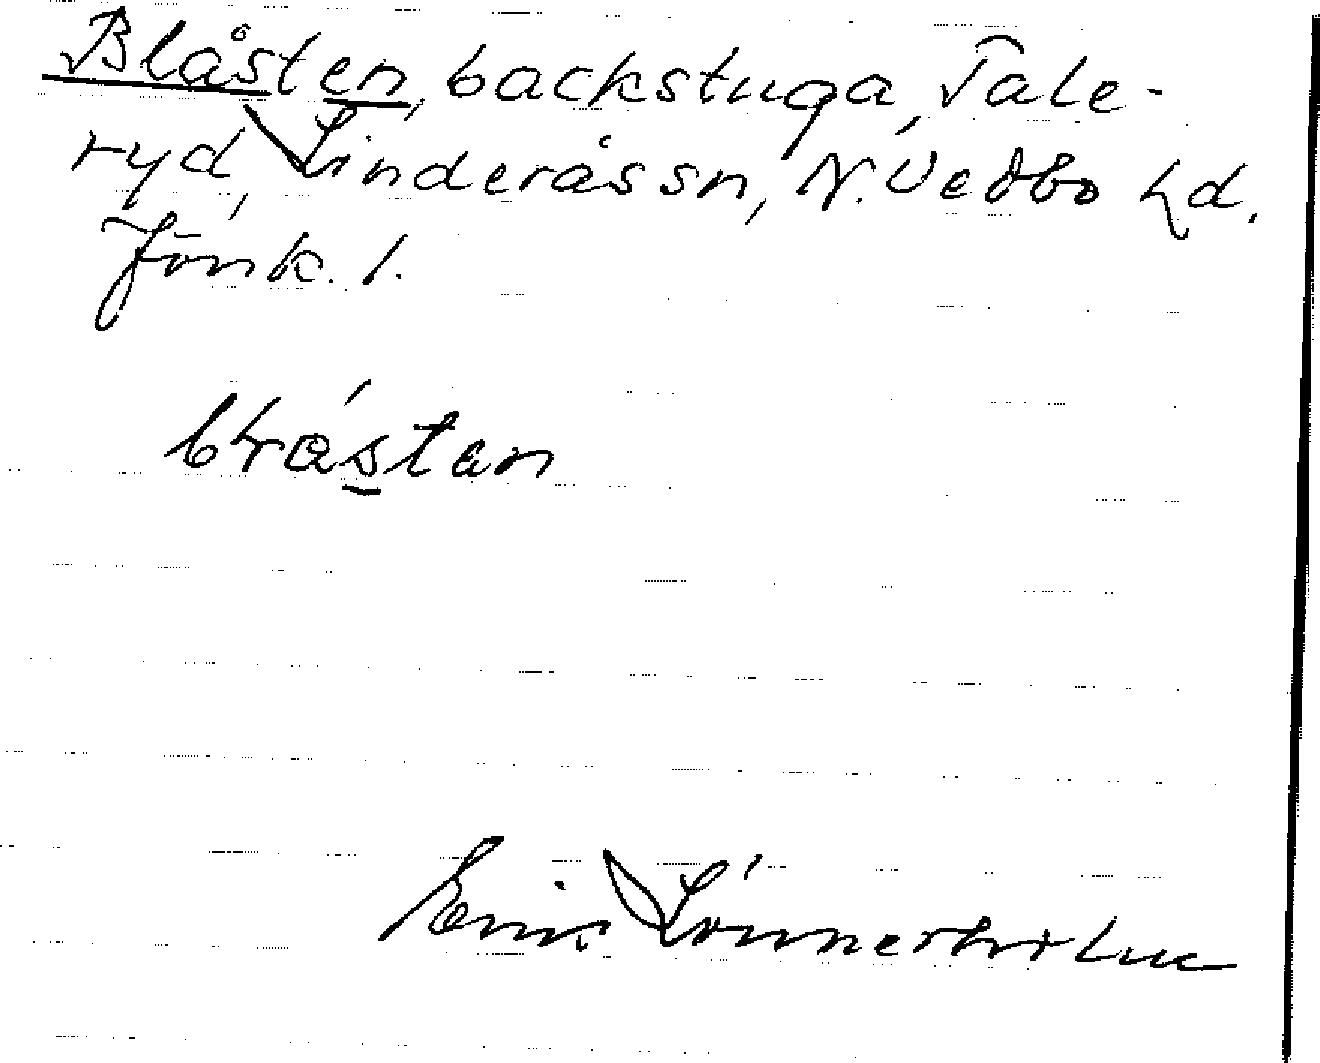 Blåsten, backstuga, Tale-
ryd, Linderås sn, N. Vedbo hd.
Jönk. l.
Lönnerholm